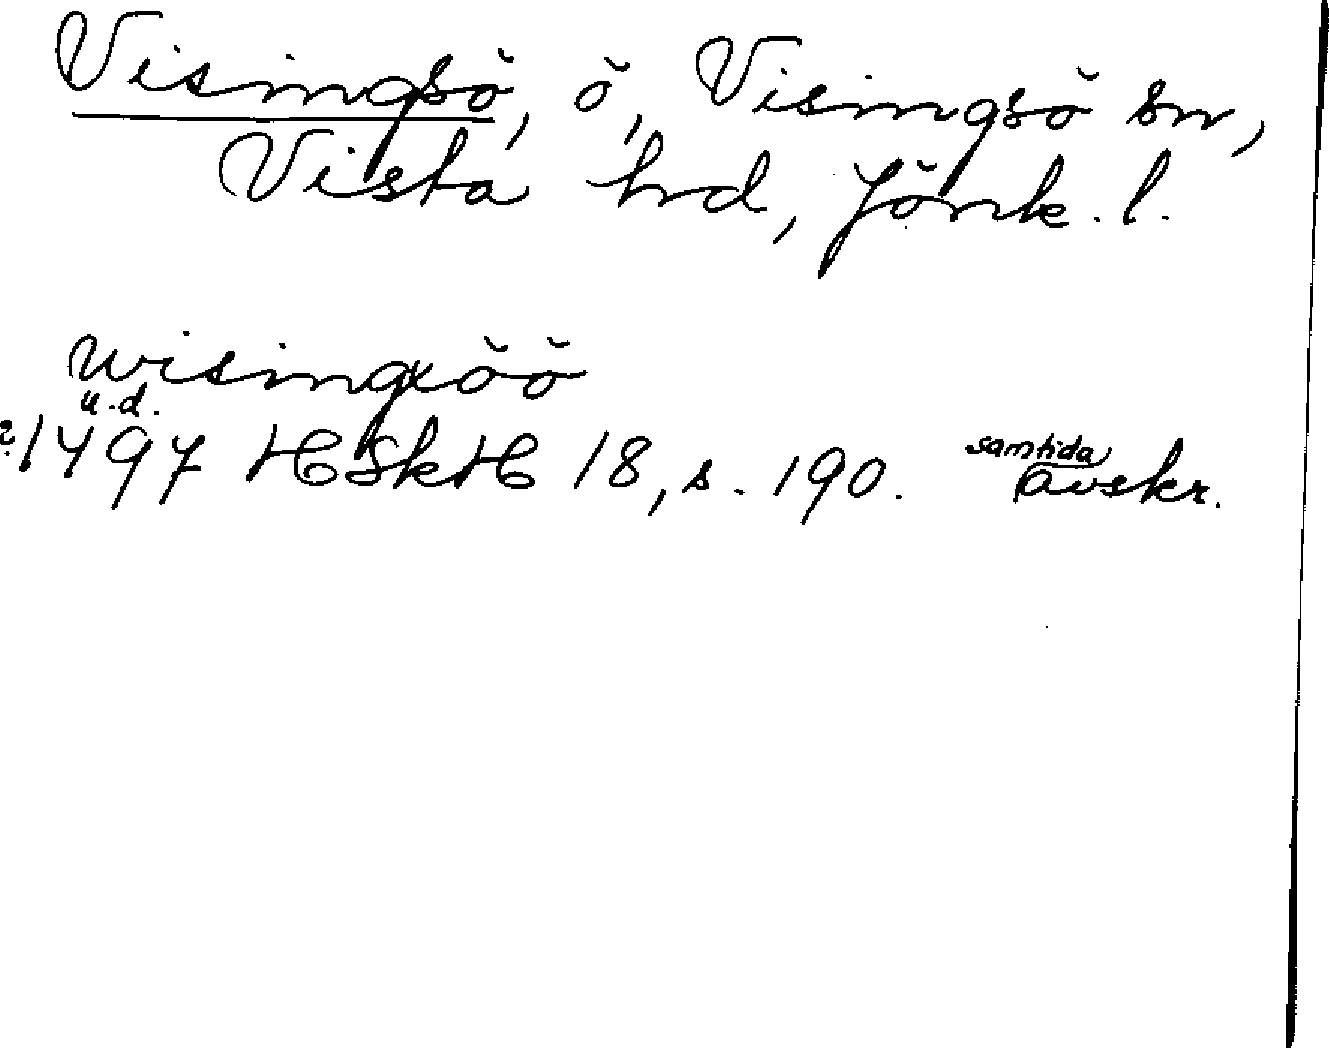 Visingsö, ö, Visingsö sn,
Vista hd, Jönk. l.
wisingxöö
u.d.
?1497 HSkH 18, s. 190. samtida avskr.